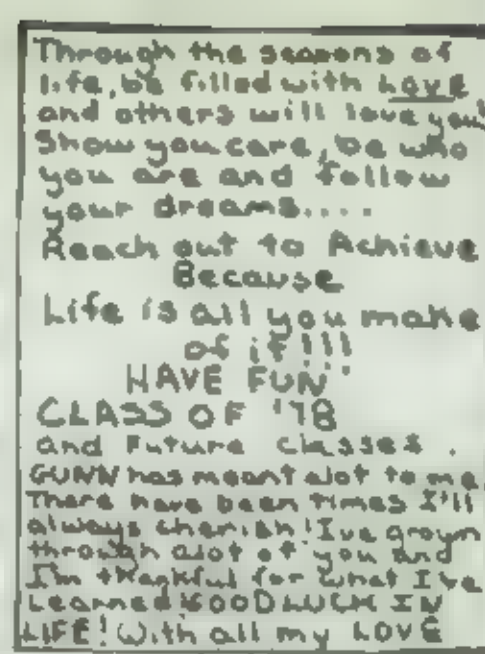 Through the seasons of
life, be filled with Love
and others will love you!
Show you care, be who
you are and follow
your dreams....
Reach out to Achieve
Because
Life is all you make
of it!!!
HAVE FUN
CLASS OF '78
and Future classes.
GUNN has meant alot to me.
There have been times I'll
always cherish! I've grown
through alot of you and
I'm thankful for what I've
Learned GOOD LUCK IN
LIFE! With all my LOVE